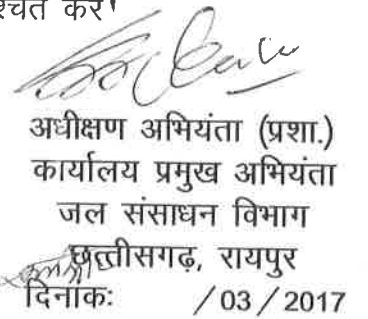 करें।
अधीक्षण अभियंता (प्रशा.)
कार्यालय प्रमुख अभियंता
जल संसाधन विभाग
छत्तीसगढ़, रायपुर
दिनांकः /03/2017